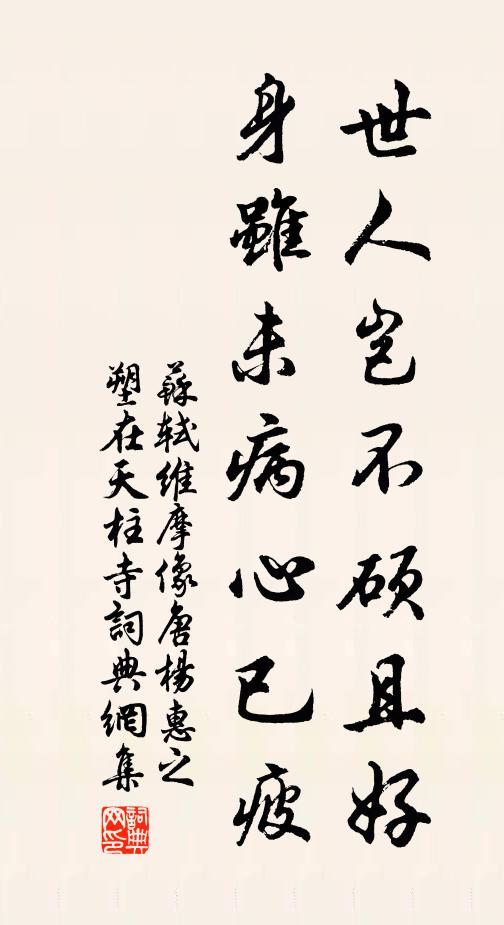 世人岂不硕且好
身雖未病心已疲
蘇軾維摩像唐楊惠之
塑在天柱寺詞典網集
詞典网印